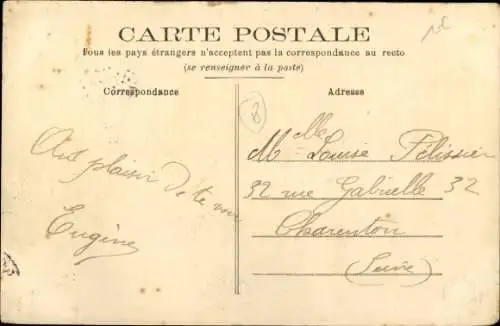 CARTE POSTALE
Tous les pays étrangers n'acceptent pas la correspondance au recto
(se renseigner à la poste)
Correspondance
Adresse
Au plaisir de te voir
Eugène
Melle Louise Pélissier
32 rue Gabrielle 32
Charenton
(Seine)